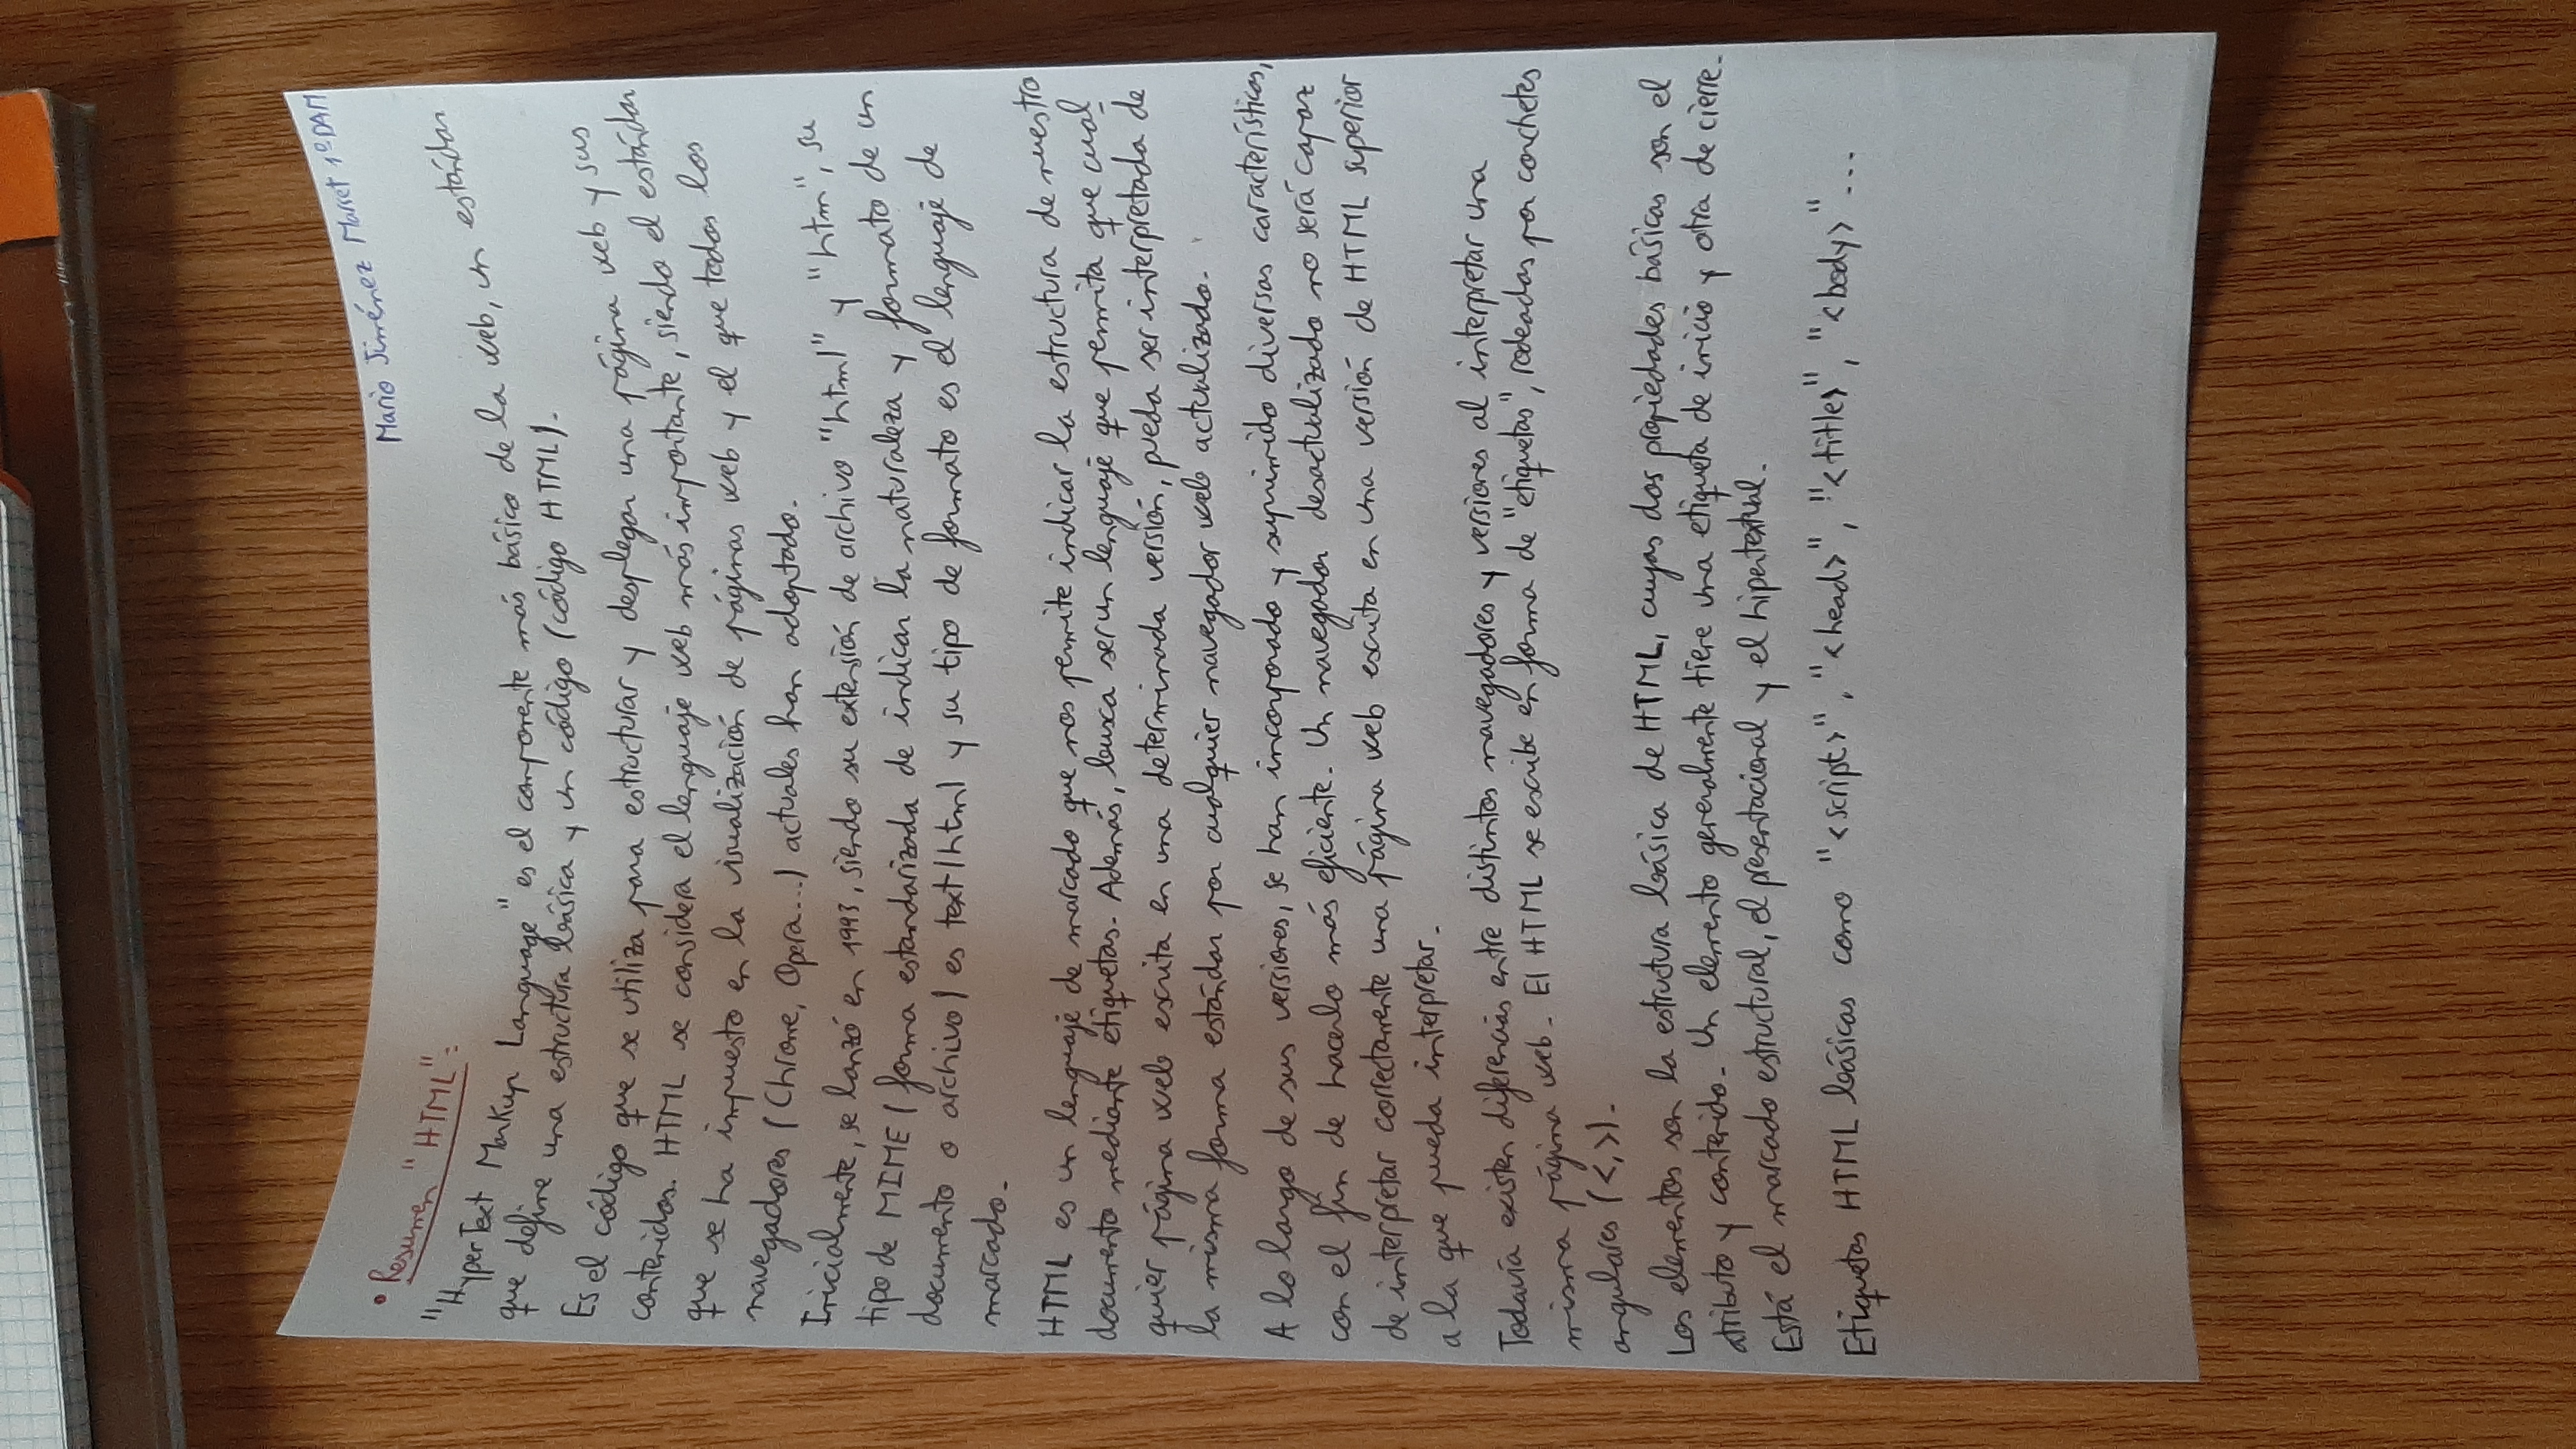 Mario Jiménez Marset 1ºDAM
• Resumen "HTML":
"HyperText Markup Language" es el componente más básico de la web, un estándar
que define una estructura básica y un código (código HTML).
Es el código que se utiliza para estructurar y desplegar una página web y sus
contenidos. HTML se considera el lenguaje web más importante, siendo el estándar
que se ha impuesto en la visualización de páginas web y el que todos los
navegadores (Chrome, Opera...) actuales han adoptado.
Inicialmente, se lanzó en 1993, siendo su extensión de archivo "html" y "htm", su
tipo de MIME (forma estandarizada de indicar la naturaleza y formato de un
documento o archivo) es text/html y su tipo de formato es el lenguaje de
marcado.
HTML es un lenguaje de marcado que nos permite indicar la estructura de nuestro
documento mediante etiquetas. Además, busca ser un lenguaje que permita que cual-
quier página web escrita en una determinada versión, pueda ser interpretada de
la misma forma estándar por cualquier navegador web actualizado.
A lo largo de sus versiones, se han incorporado y suprimido diversas características,
con el fin de hacerlo más eficiente. Un navegador desactualizado no será capaz
de interpretar correctamente una página web escrita en una versión de HTML superior
a la que pueda interpretar.
Todavía existen diferencias entre distintos navegadores y versiones al interpretar una
misma página web. El HTML se escribe en forma de "etiquetas", rodeadas por corchetes
angulares (<,>).
Los elementos son la estructura básica de HTML, cuyas dos propiedades básicas son el
atributo y contenido. Un elemento generalmente tiene una etiqueta de inicio y otra de cierre.
Está el marcado estructural, el presentacional y el hipertextual.
Etiquetas HTML básicas como "<script>", "<head>", "<title>", "<body>"...